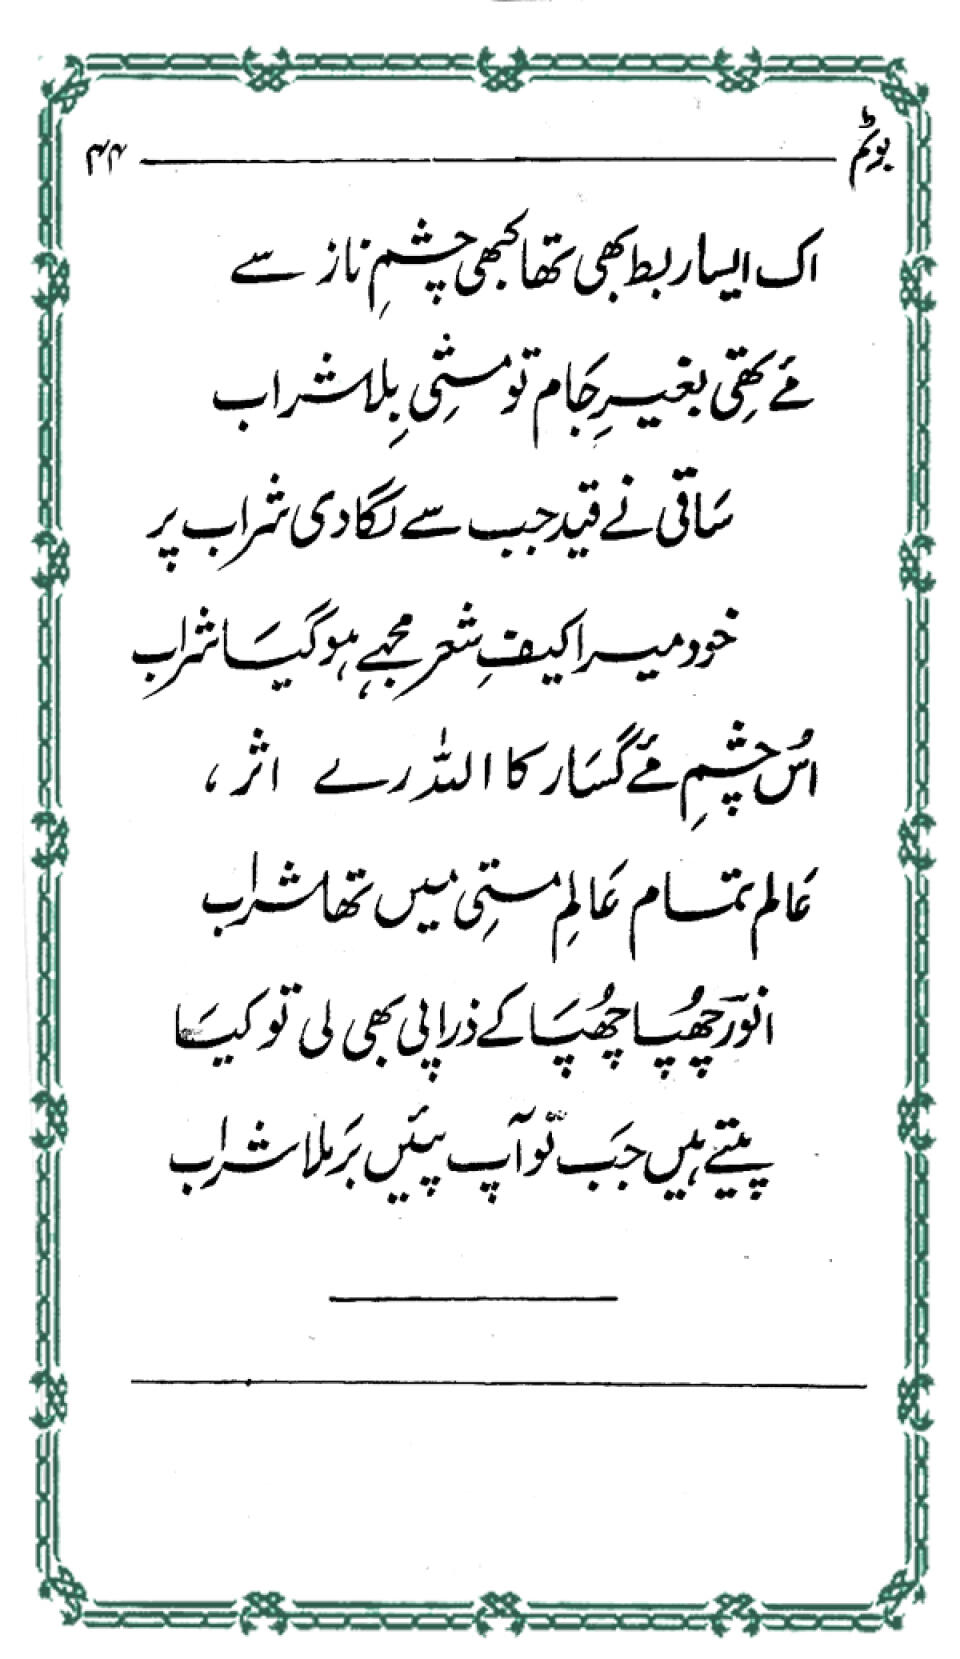 بوٹم ۴۴
اک ایسا ربط بھی تھا کبھی چشمِ ناز سے
مۓ تھی بغیرِ جام تو مستی بِلا شراب
سَاقی نے قید جب سے لگا دی شراب پر
خود میرا کیفِ شعر مجھے ہو گیَا شراب
اُس چشمِ مۓ گسَار کا اللہ رے اثر ،
عَالم تمام عَالمِ مستی میں تھا شراب
انورؔ چھُپا چھُپَا کے ذرا پی بھی لی تو کیَا
پیتے ہیں جَب تو آپ پئیں بَرملا شراب